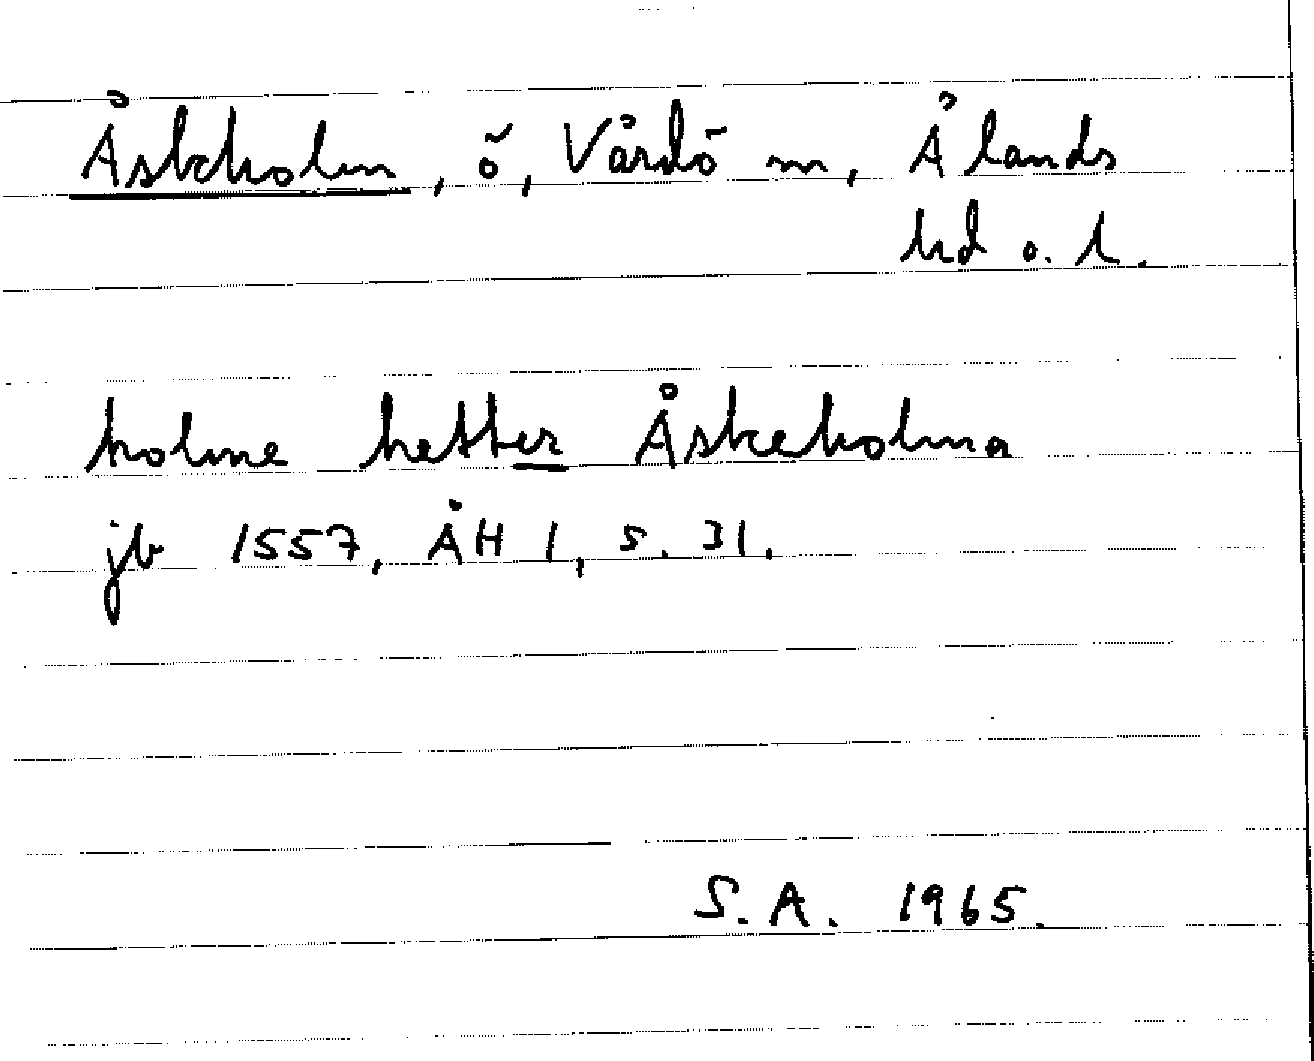 Åskholm, ö, Vårdö sn, Ålands
hd o. l.
holme hetter Åskeholma
jb 1557, ÅH 1, s. 31.
S.A. 1965.